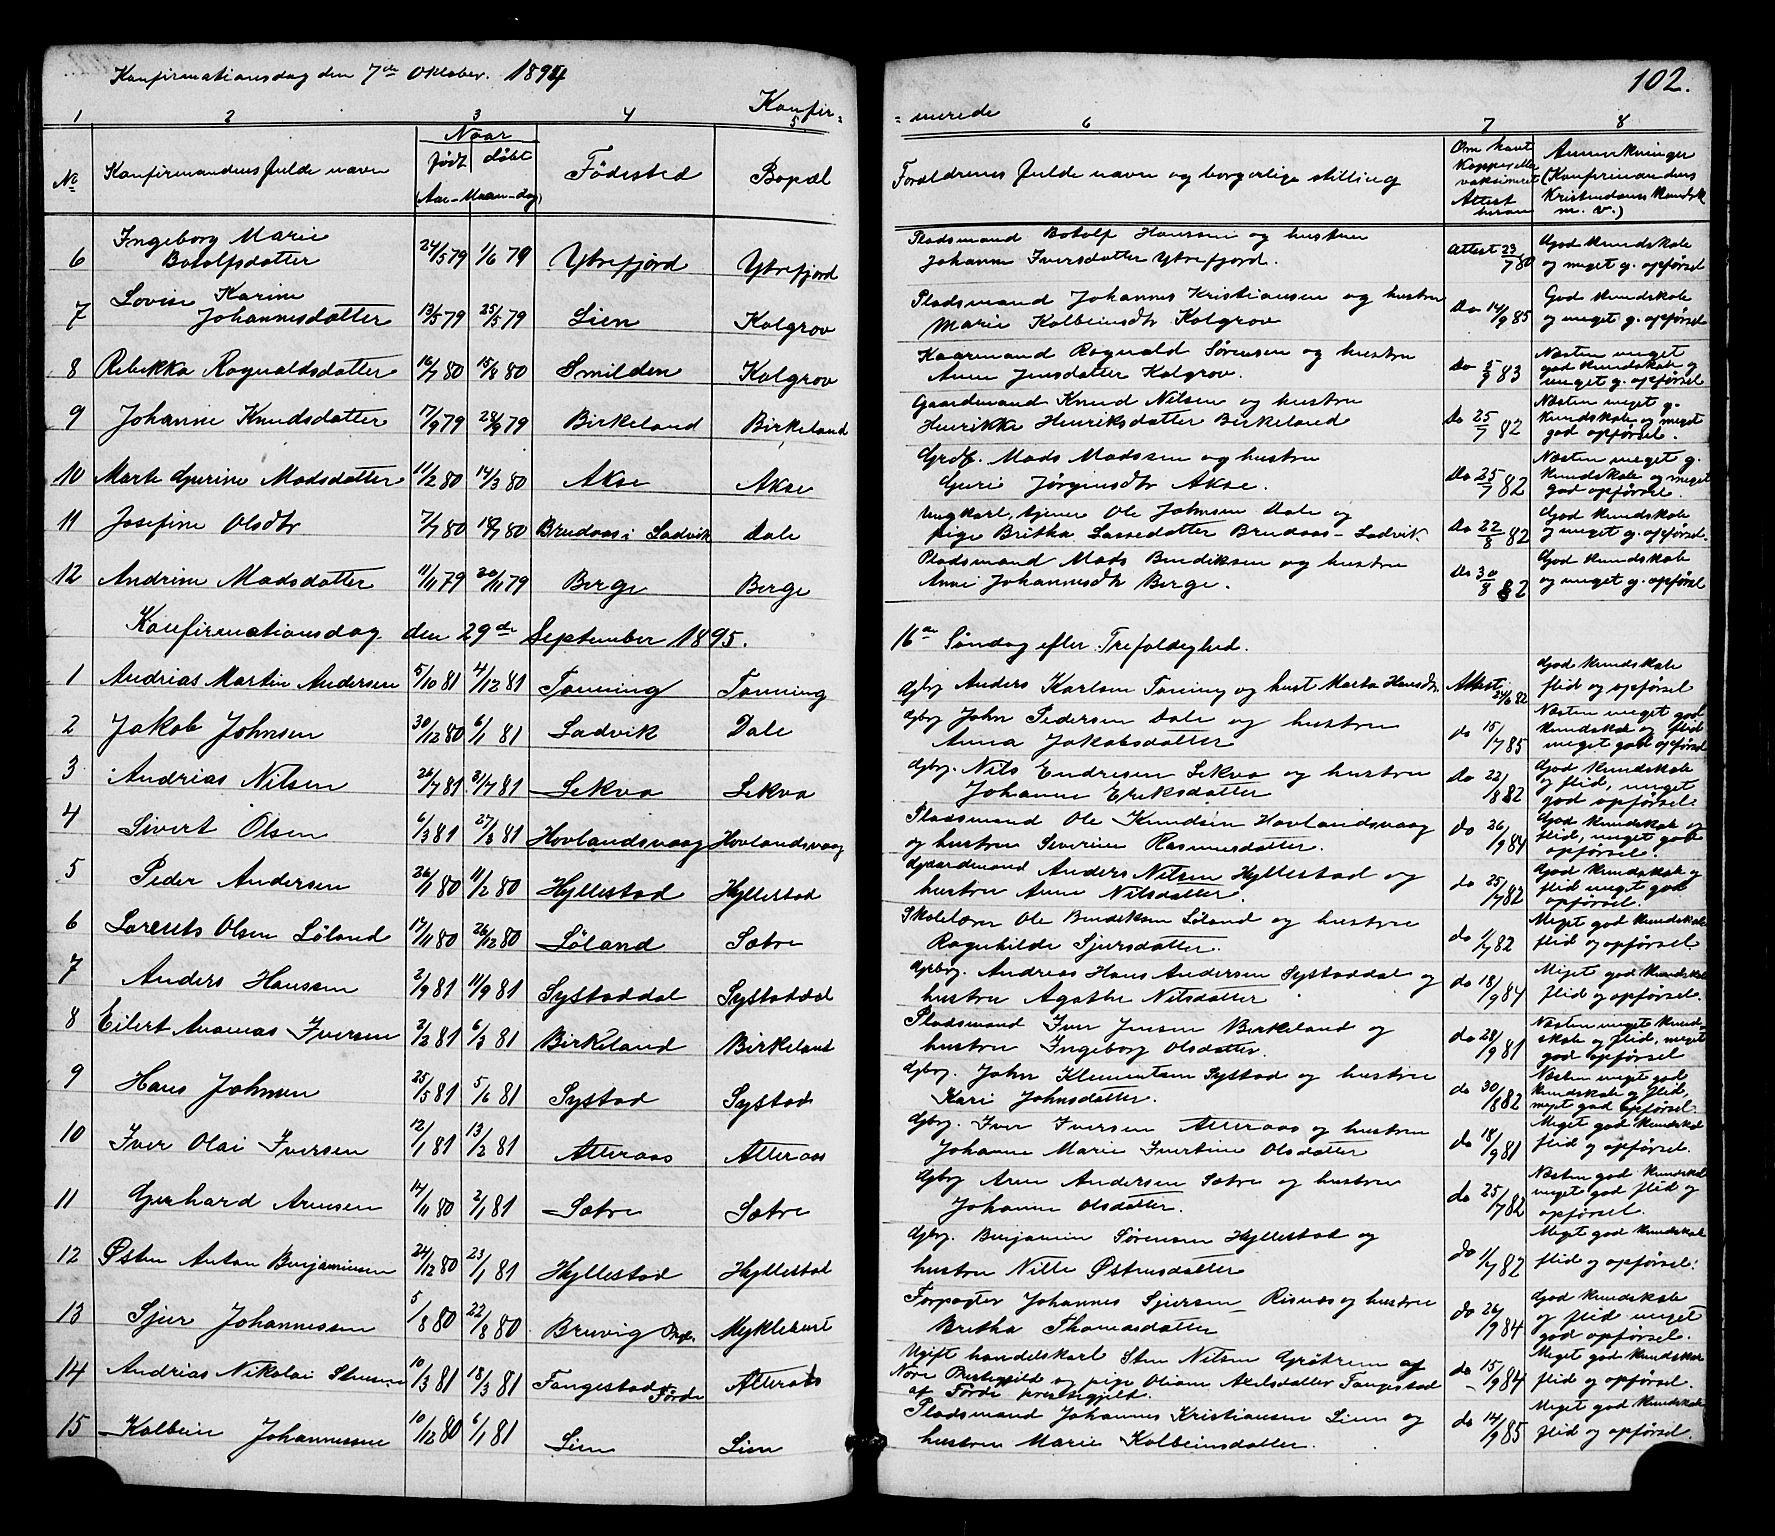 Konfirmationsdag den 7de Oktober. 1894
102.
Konfir-
-merede
1 2 3 4 5 6 7 8
No Konfirmandens fulde navn Naar født døbt (Aar-Maan-dag) Fødested Bopæl Forældrenes fulde navn og borgerlige stilling Om havt Kopper eller vaksineret Attest herom Anmerkninger (Konfirmandens Kristendoms Kundsk m. v.)
6 Ingeborg Marie Botolfsdatter 24/5 79 1/6 79 Ytrefjord Ytrefjord Pladsmand Botolf Hanssen og hustru Attest 23/7 80 God Kundskab
Johanne Iversdatter Ytrefjord. og meget g. opførsel
7 Lovise Karine Johannesdatter 13/5 79 25/5 79 Lien Kolgrov Pladsmand Johannes Kristiansen og hustru Do 14/9 85 God Kundskab
Marie Kolbeinsdtr Kolgrov og meget g. opførsel
8 Rebekka Ragnaldsdatter 16/7 80 15/8 80 Smilden Kolgrov Kaarmand Ragnald Sørensen og hustru Do 5/9 83 Næsten meget god Kundskab og
Anne Jensdatter Kolgrov. meget g. opførsel
9 Johanne Knudsdatter 17/9 79 28/9 79 Birkeland Birkeland Gaardmand Knud Nilsen og hustru Do 25/7 82 Næsten meget g. Kundskab og meget
Henrikke Henriksdatter Birkeland god opførsel.
10 Marte Gurine Madsdatter 11/2 80 14/3 80 Akse Akse Grdf. Mads Madssen og hustru Do 25/7 82 Næsten meget g. Kundskab og meget
Guri Jørginsdtr Akse. god opførsel.
11 Josefine Olsdtr 7/7 80 18/7 80 Brudaas i Ladvik Dale Ungkarl, tjener Ole Johnsen Dale og Do 22/8 82 God Kundskab
pige Britha Lassedatter Brudaas - Ladvik og meget g. opførsel.
12 Andrine Madsdatter 11/11 79 20/11 79 Berge Berge Pladsmand Mads Bendiksen og hustru Do 30/8 82 God Kundskab
Anne Johannesdtr Berge. og meget g. opførsel
Konfirmationsdag den 29de September 1895. 16de Søndag efter Trefoldighed.
1 Andrias Martin Andersen 5/10 81 4/12 81 Tønning Tønning Gbrg Anders Karlsen Tøning og hust Marta Hansdtr Attest 24/6 82 God Kundskab
flid og opførsel
2 Jakob Johnsen 30/12 80 6/1 81 Ladvik Dale Gbrg John Pedersen Dale og hustru do 15/7 85 Næsten meget god Kundskab og flid
Anna Jakobsdatter meget god opførsel
3 Andrias Nilsen 26/7 81 31/7 81 Lekva Lekva Gbrg. Nils Endresen Lekva og hustru do 22/8 82 God Kundskab og flid, meget
Johanne Eriksdatter god opførsel.
4 Sivert Olsen 6/3 81 27/3 81 Hovlandsvaag Hovlandsvaag Pladsmand Ole Knudsen Hovlandsvaag do 26/9 84 God Kundskab og flid, meget god
og hustru Severine Rasmusdatter. opførsel.
5 Peder Andersen 26/1 80 11/2 80 Hyllestad Hyllestad Gaardmand Anders Nilsen Hyllestad og do 25/7 82 God Kundskab og flid meget god
hustru Anne Nilsdatter. opførsel.
6 Olsen Løland 17/11 80 26/12 80 Løland Sætre Skolelærer Ole Bendiksen Løland og hustru do 1/7 82 Meget god Kundskab
Ragnhilde Sjursdatter. flid og opførsel
7 Anders Hanssen 2/9 81 11/9 81 Systaddal Systaddal Gbrg. Andreas Hans Andersen Systaddal og do 18/9 84 Meget god Kundskab
hustru Agathe Nilsdatter flid og opførsel.
8 Eilert Iversen 2/2 81 6/3 81 Birkeland Birkeland Pladsmand Iver Jensen Birkeland og do 28/9 81 Næsten meget Kund-skab og flid, meget
hustru Ingeborg Olsdatter. god opførsel
9 Hans Johnsen 25/5 81 5/6 81 Systad Systad Gbrg. John Klementsen Systad og hustru do 30/8 82 Næsten meget god Kundskab og flid,
Kari Johnsdatter. meget god opførsel.
10 Iver Olai Iversen 12/1 81 13/2 81 Atteraas Atteraas Gbrg. Iver Iversen Atteraas og hustru do 18/9 81 Meget god Kundskab
Johanne Marie Ivertine Olsdatter flid og opførsel.
11 Gerhard Arnesen 14/11 80 2/1 81 Sætre Sætre Gbrg Arne Andersen Sætre og hustru do 25/7 82 Næsten god Kundskab meget god flid og
Johanne Olsdatter. opførsel.
12 Østen Anton Benjaminsen 24/12 80 23/1 81 Hyllestad Hyllestad Gbrg. Benjamin Sørensen Hyllestad og do 1/7 82 Meget god Kundskab
hustru Nille Østensdatter flid og opførsel.
13 Sjur Johannessen 5/8 80 22/8 80 Bruvig Myklebust Forpagter Johannes Sjursen Risnes og hustru do 26/9 84 God Kundskab og flid meget
Britha Thomasdatter god opførsel.
14 Andrias Nikolai Stensen 10/3 81 18/3 81 Fangestad Førde Atteraas Ugift handelskarl Sten Nilsen af do 15/9 84 Meget god Kundskab
Nore Prestegjeld og pige Oliane Akselsdatter Fangestad flid og opførsel.
af Førde prestegjeld.
15 Kolbein Johannessen 10/12 80 6/1 81 Lien Lien Pladsmand Johannes Kristiansen Lien og do 14/9 85 Meget god Kundskab
hustru Marie Kolbeinsdatter. flid og opførsel.